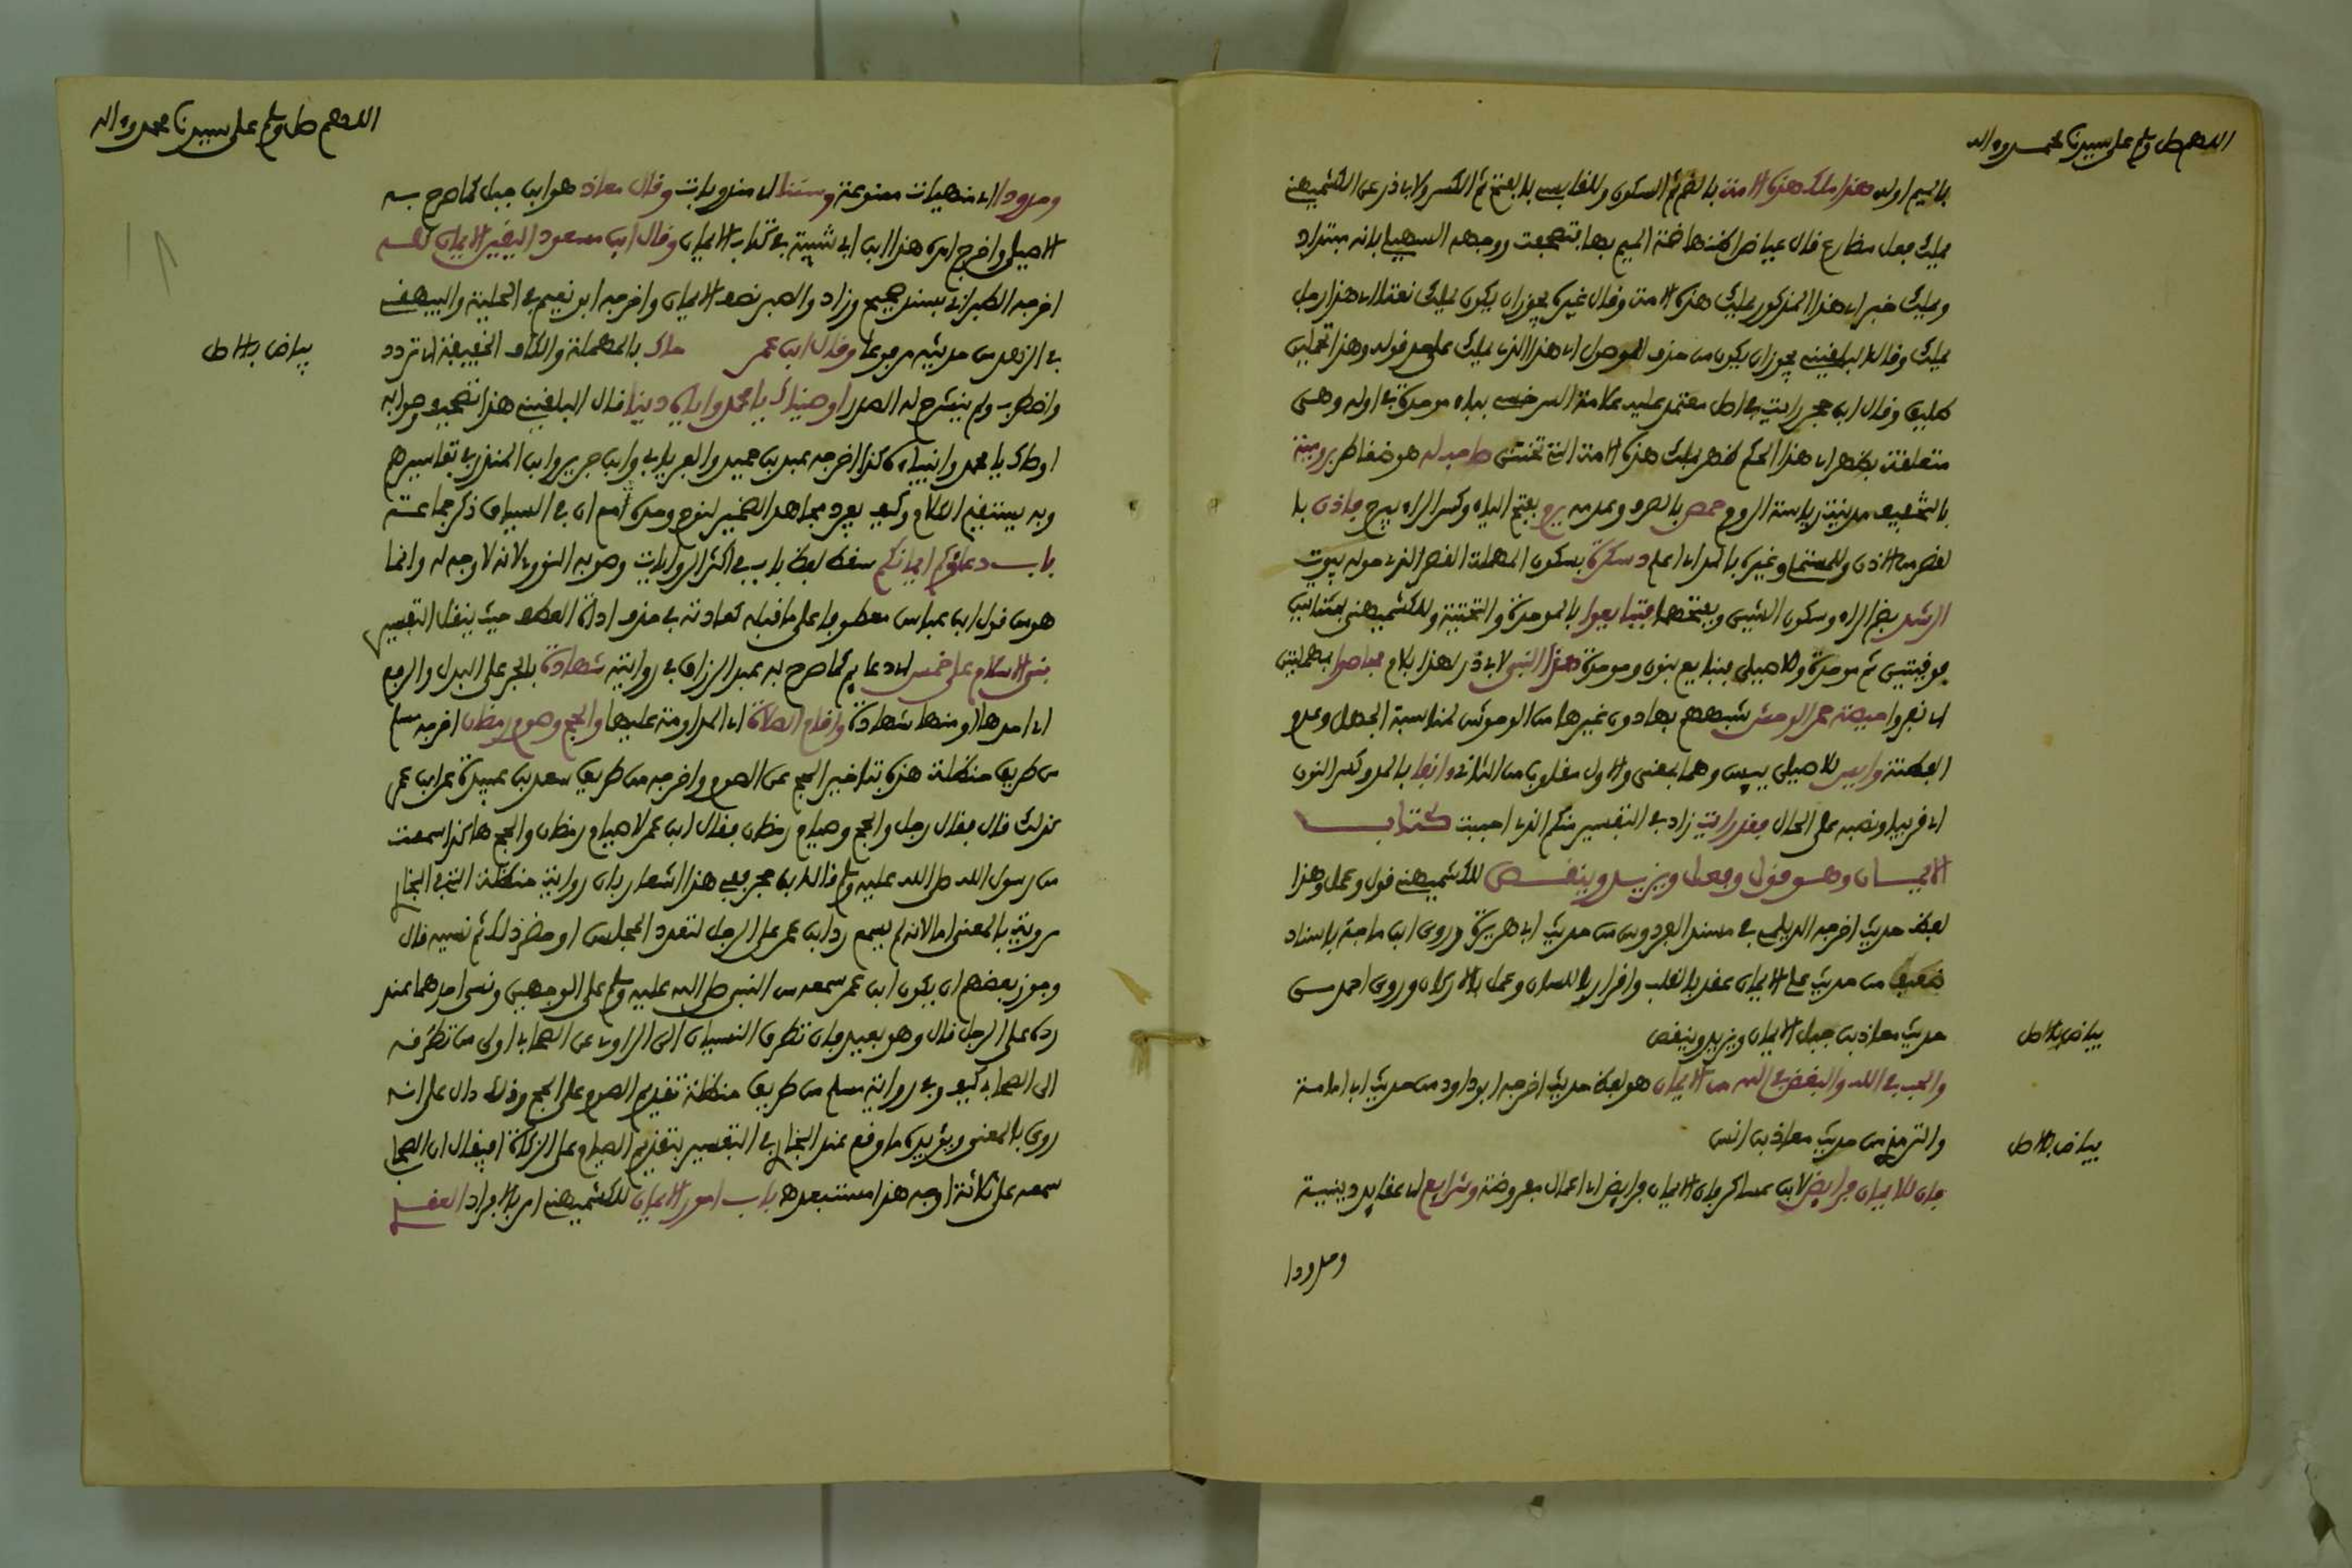 اللهم صل وسلم على سيدنا محمد وءاله
بالميم اوله هذا ملك هذه الامة بالضم ثم السكون وللقابسي بالفتح ثم الكسر ولابي ذر عن الكشميهني
يملك فعل مضارع قال عياض اظنها ضمة الميم بها فتصحفت ووجهه السهيلي بانه مبتدا
ويملك خبر اي هذا المذكور يملك هذه الامة وقال غيره يجوز ان يكون يملك نعتا اي هذا رجل
يملك وقال البلقيني يجوز ان يكون من حذف الموصول اي هذا الذي يملك على حد قوله وهذا تحملين
طليق وقال ابن حجر رايت في اصل معتمد عليه علامة السرخسي بباء موحدة في اوله وهي
متعلقة بظهر اي هذا الحكم ظهر بملك هذه الامة التي تختتن صاحب له هو ضغاطر برومية
بالتخفيف مدينة رياسة الروم حمص بالصرف وعدمه يرم بفتح الياء وكسر الراء يبرح فاذن بال
لقصر من الاذن وللمستملي وغيره بالمد اي اعلم دسكرة بسكون المهملة القصر الذي حوله بيوت
الرشد بضم الراء وسكون الشين وبفتحهما فتبايعوا بالموحدة والتحتية وللكشميهني بمثناتين
فوقيتين ثم موحدة وللاصيلي فنبايع بنون وموحدة هذا النبي لابي ذر لهذا بلام فحاصوا بمهملتين
اي نفروا حيصة حمر الوحش شبههم بها دون غيرها من الوحوش لمناسبة الجهل وعدم
الفطنة وايس للاصيلي يئس وهما بمعنى والاول مقلوب من الثاني ءانفا بالمد وكسر النون
اي قريبا ونصبه على الحال فقد رايت زاد في التفسير منكم الذي احببت كتاب
الايمان وهو قول وفعل ويزيد وينقص للكشميهني قول وعمل وهذا
لفظ حديث اخرجه الديلمي في مسند الفردوس من حديث ابي هريرة وروى ابن ماجه باسناد
ضعيف من حديث علي الايمان عقد بالقلب واقرار باللسان وعمل بالاركان وروى احمد من
حديث معاذ بن جبل الايمان يزيد وينقص
بياض بالاصل
والحب في الله والبغض في الله من الايمان هو لفظ حديث اخرجه ابو داود من حديث ابي امامة
والترمذي من حديث معاذ بن انس
بياض بالاصل
فان للايمان فرايض لابن عساكر فان الايمان فرايض اي اعمال مفروضة وشرايع اي عقايد دينية
وحدودا
اللهم صل وسلم على سيدنا محمد وءاله
وحدودا اي منهيات ممنوعة وسننا اي مندوبات وقال معاذ هو ابن جبل كما صرح به
الاصيلي واخرج اثره هذا ابن ابي شيبة في كتاب الايمان وقال ابن مسعود اليقين الايمان كله
اخرجه الطبراني بسند صحيح وزاد والصبر نصف الايمان واخرجه ابو نعيم في الحلية والبيهقي
في الزهد من حديثه مرفوعا وقال ابن عمر حاك بالمهملة والكاف الخفيفة اي تردد
بياض بالاصل
واضطرب ولم ينشرح له الصدر اوصيناك يا محمد واياه دينا قال البلقيني هذا تصحيف وصوابه
اوصاك يا محمد وانبياءه كذا اخرجه عبد بن حميد والفريابي وابن جرير وابن المنذر في تفاسيرهم
وبه يستقيم الكلام وكيف يفرد مجاهد الضمير لنوح وحده مع ان في السياق ذكر جماعة
باب دعاؤكم ايمانكم سقط لفظ باب في اكثر الروايات وصوبه النووي لانه لا وجه له وانما
هو من قول ابن عباس معطوفا على ما قبله كعادته في حذف اداة العطف حيث ينقل التفسير
بني الاسلام على خمس اي دعايم كما صرح به عبد الرزاق في روايته شهادة بالجر على البدل والرفع
اي احدها او منها شهادة واقام الصلاة اي المداومة عليها والحج وصوم رمضان اخرجه مسلم
من طريق حنظلة هذه بتاخير الحج عن الصوم واخرجه من طريق سعد بن عبيدة عن ابن عمر
كذلك قال فقال رجل والحج وصيام رمضان فقال ابن عمر لا صيام رمضان والحج هاكذا سمعت
من رسول الله صلى الله عليه وسلم قال ابن حجر ففي هذا اشعار بان رواية حنظلة التي في البخاري
مروية بالمعنى اما لانه لم يسمع رد ابن عمر على الرجل لتعدد المجلس او حضر ذلك ثم نسيه قال
وجوز بعضهم ان يكون ابن عمر سمعه من النبي صلى الله عليه وسلم على الوجهين ونسي احدهما عند
رده على الرجل قال وهو بعيد فان تطرق النسيان الى الراوي عن الصحابي اولى من تطرقه
الى الصحابي كيف وفي رواية مسلم من طريق حنظلة تقديم الصوم على الحج وذلك دال على انه
روي بالمعنى ويؤيده ما وقع عند البخاري في التفسير بتقديم الصيام على الزكاة افيقال ان الصحابي
سمعه على ثلاثة اوجه هذا مستبعد ه باب امور الايمان للكشميهني امر بالافراد العقدي